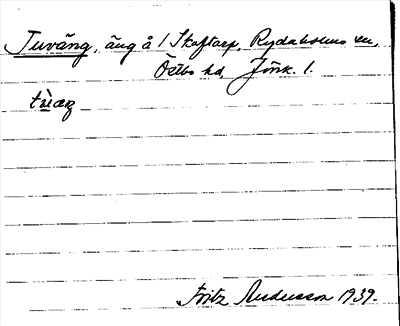 Tuväng, äng å 1 Skaftarp, Rydaholms sn,
Östbo hd, Jönk. l.
Fritz Andersson 1939.